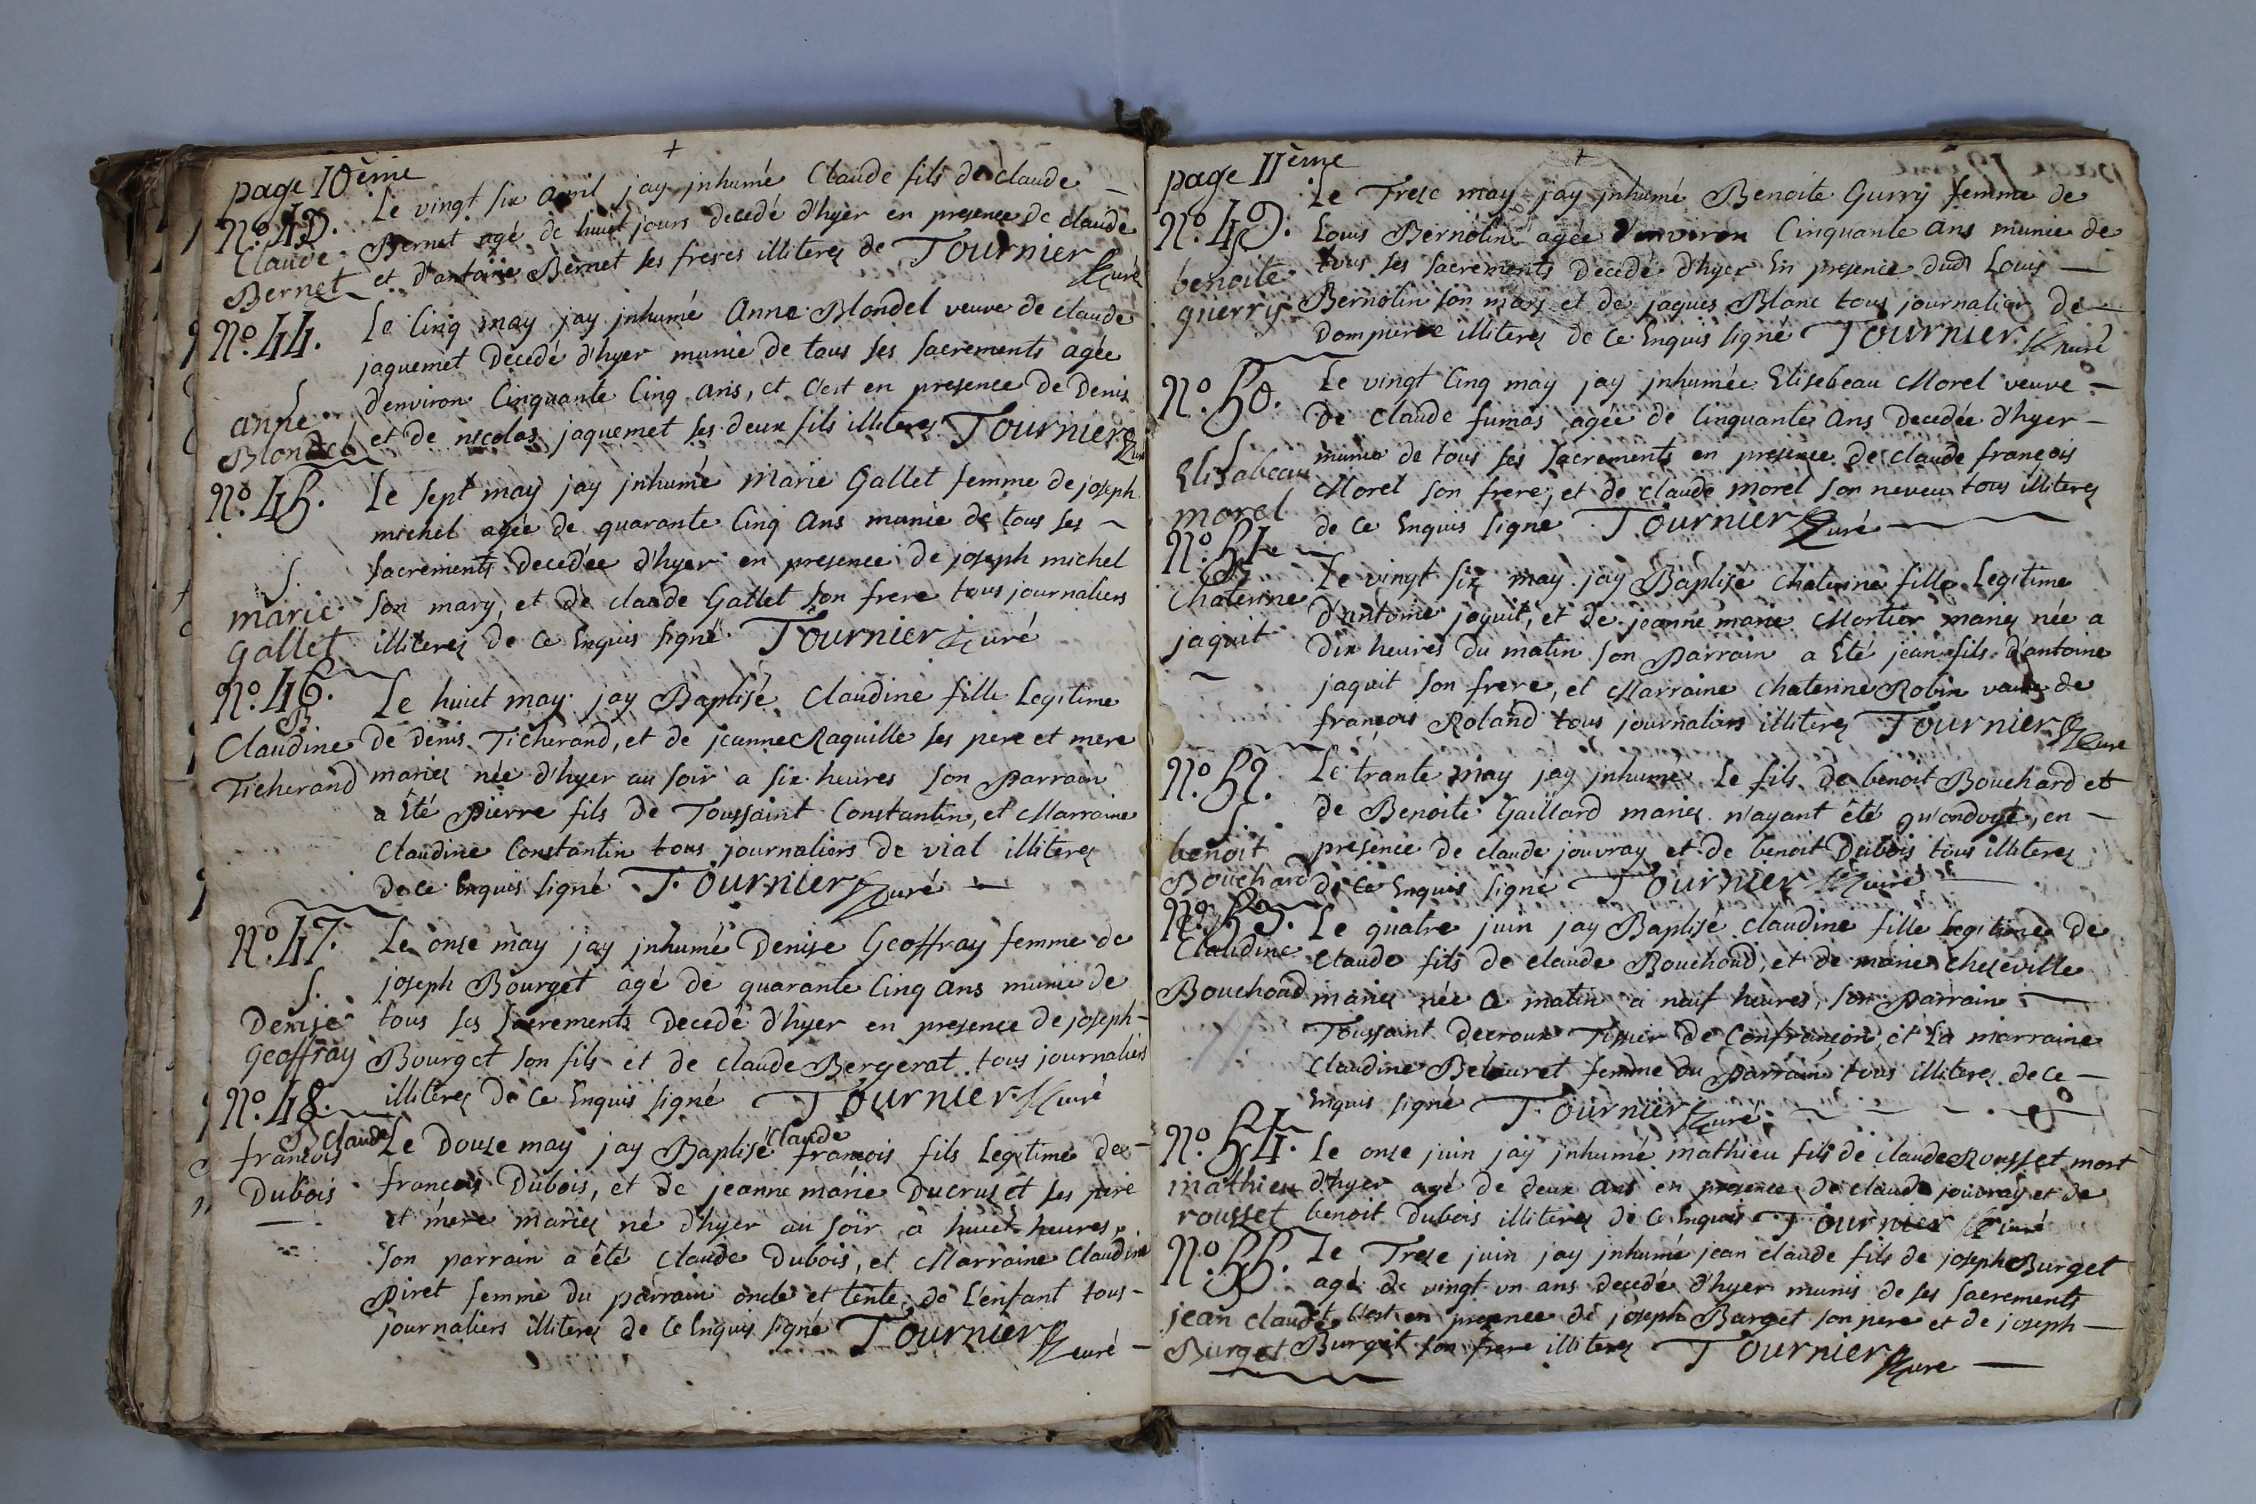 page 10ème
+
N.o 43.
Claude
Bernet
Le vingt six avril jay jnhumé Claude fils de claude
Bernet agé de huict jours decedé d'hyer en presence de claude
et d'antoine Bernet ses freres illiterez de Tournier Curé
N.o 44.
S.
anne
Blondel
Le Cinq may jay jnhumé Anne Blondel veuve de claude
jaquemet Decedé d'hyer munie de tous ses sacrements agée
denviron Cinquante Cinq ans, et c'est en presence de Denis
et de nicolas jaquemet ses deux fils illiterez Tournier Curé
N.o 45.
S.
marie
Gallet
Le sept may jay jnhumé Marie Gallet femme de joseph
michel agée de quarante Cinq ans munie de tous ses
sacrements Decedée d'hyer en presence de joseph michel
son mary, et de claude Gallet son frere tous journaliers
illiterez de Ce Enquis signé Tournier Curé
N.o 46.
B
Claudine
Ticherand
Le huict may jay Baptisé Claudine fille Legitime
de Denis Ticherand, et de jeanne Raquille ses pere et mere
mariez née d'hyer au soir a six heures son Parrain
a Eté Pierre fils de Toussaint Constantin, et Marraine
Claudine Constantin tous journaliers de vial illiterez
de ce Enquis signé Tournier Curé
N.o 47.
S.
Denise
Geoffray
Le onse may jay jnhumé Denise Geoffray femme de
joseph Bourget agé de quarante Cinq ans munie de
tous ses sacrements Decedé d'hyer en presence de joseph
Bourget son fils et de claude Bergerat tous journaliers
illiterez de Ce Enquis signé Tournier Curé
N.o 48.
B claude
francois
Dubois
claude
Le Douze may jay Baptisé francois fils Legitime de
francois Dubois, et de jeanne marie Ducruset ses pere
et mere mariez né d'hyer au soir a huict heures,
son parrain a êté Claude Dubois, et Marraine Claudine
Piret femme du parrain oncle et tente de L'enfant tous
journaliers illiterez de Ce Enquis signé Tournier Curé
page 11ème
+
N.o 49.
benoite
guerry
Le Trese may jay jnhumé Benoite Gurry femme de
Louis Bernolin agée d'environ Cinquante ans munie de
tous ses sacrements Decedé d'hyer En presence dud Louis
Bernolin son mary et de jaques Blanc tous journalier de
Dompierre illiterez de Ce Enquis signé Tournier Curé
N.o 50.
S
Elisabeau
morel
Le vingt Cinq may jay jnhumée Elisebeau Morel veuve
De Claude fumas agée de Cinquante ans Decedée d'hyer
munie de tous ses sacrements en presence de claude françois
Morel son frere, et de claude morel son neveu tous illiterez
de Ce Enquis signé Tournier Curé
N.o 51.
B
Chaterine
jaquit
Le vingt six may jay Baptisé chaterine fille Legitime
d'antoine jaquit, et de jeanne marie Mortier mariez née a
Dix heures du matin son Parrain a Eté jean fils d'antoine
jaquit son frere, et Marraine Chaterine Robin vauve de
françois Roland tous journaliers illiterez Tournier Curé
N.o 52.
S.
benoit
Bouchard
Le trante may jay jnhumé Le fils de benoit Bouchard et
de Benoite Gaillard mariez n'ayant êté qu'ondoyé, en
presence de claude jouvray et de benoit Dubois tous illiterez
de Ce Enquis signé Tournier Curé
N.o 53.
Claudine
Bouchoud
Le quatre juin jay Baptisé claudine fille Legitime de
claude fils de claude Bouchoud, et de marie cheseville
mariez née Ce matin a neuf heures, son Parrain
Toussaint decroux Tissier de Confrançon, et La marraine
Claudine Belouret femme du Parrain tous illiterez de Ce
Enquis signé Tournier Curé
N.o 54.
mathieu
rousset
Le onse juin jay jnhumé mathieu fils de claude Rousset mort
d'hyer agé de deux ans en presence de claude jouvray et de
benoit Dubois illiterez de Ce Enquis Tournier Curé
N.o 55.
jean claude
Burget
Le Trese juin jay jnhumé jean claude fils de joseph Burget
agé de vingt un ans decedé d'hyer munis de ses sacrements
et c'est en presence de joseph Burget son pere et de joseph
Burget son frere illiterez Tournier Curé